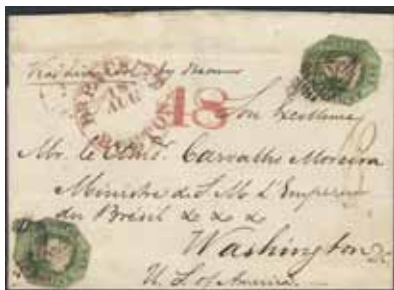 by Steamer
BR. PACKET
AUG
BOSTON
48
Son Excellence
Mr. le Comd. Carvalho Moreira
Ministre de S. M. L'Empereur
du Brésil & & &
Washington
U. S. of America.